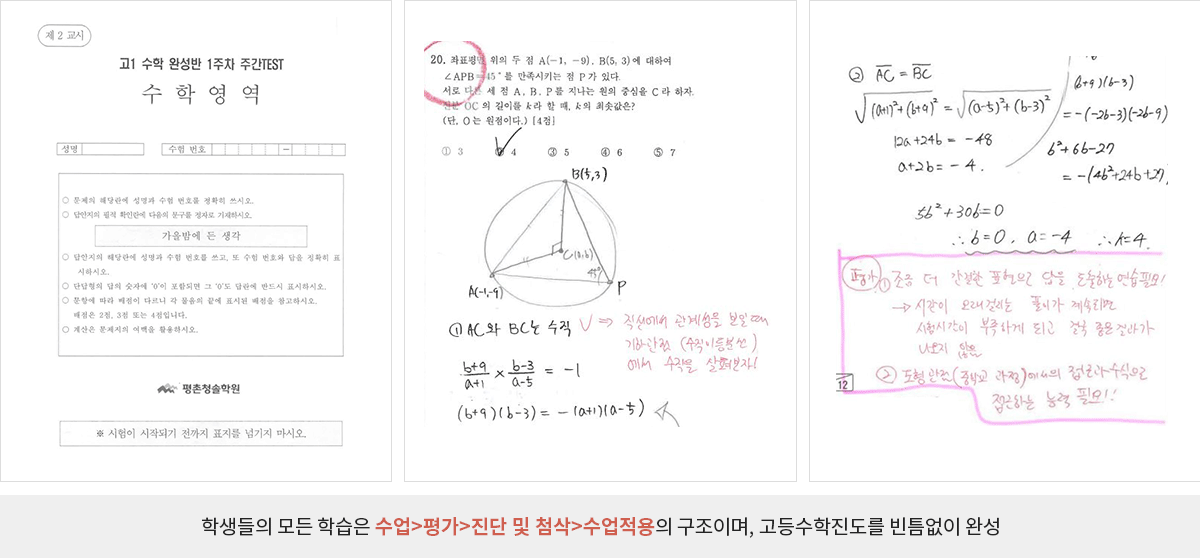 제 2 교시
고1 수학 완성반 1주차 주간TEST
수학영역
성명
수험 번호
–
○ 문제의 해당란에 성명과 수험 번호를 정확히 쓰시오.
○ 답안지의 필적 확인란에 다음의 문구를 정자로 기재하시오.
가을밤에 든 생각
○ 답안지의 해당란에 성명과 수험 번호를 쓰고, 또 수험 번호와 답을 정확히 표
시하시오.
○ 단답형의 답의 숫자에 '0'이 포함되면 그 '0'도 답란에 반드시 표시하시오.
○ 문항에 따라 배점이 다르니 각 물음의 끝에 표시된 배점을 참고하시오.
배점은 2점, 3점 또는 4점입니다.
○ 계산은 문제지의 여백을 활용하시오.
평촌청솔학원
※ 시험이 시작되기 전까지 표지를 넘기지 마시오.
20. 좌표평면 위의 두 점 A(−1, −9), B(5, 3)에 대하여
∠APB=45°를 만족시키는 점 P가 있다.
서로 다른 세 점 A, B, P를 지나는 원의 중심을 C라 하자.
선분 OC의 길이를 k라 할 때, k의 최솟값은?
(단, O는 원점이다.) [4점]
① 3 ② 4 ③ 5 ④ 6 ⑤ 7
B(5,3)
C(a,b)
45°
A(-1,-9)
P
① AC와 BC는 수직
V ⇒ 직선에서 관계성을 보일 때
기하관점 (수직이등분선)
에서 수직을 살펴보자!
(b+9)/(a+1) × (b-3)/(a-5) = -1
(b+9)(b-3) = -(a+1)(a-5)
② AC = BC
√((a+1)²+(b+9)²) = √((a-5)²+(b-3)²)
12a+24b = -48
a+2b = -4.
(b+9)(b-3)
= -(-2b-3)(-2b-9)
b²+6b-27
= -(4b²+24b+27)
5b²+30b=0
∴ b=0, a=-4 ∴ k=4.
평가 ① 조금 더 간결한 표현으로 답을 도출하는 연습필요!
→ 시간이 오래걸리는 풀이가 계속되면
시험시간이 부족하게 되고 결국 좋은결과가
나오지 않음
② 도형관점(중학교 과정)에서의 접근과 수식으로
접근하는 능력 필요!!
12
학생들의 모든 학습은 수업>평가>진단 및 첨삭>수업적용의 구조이며, 고등수학진도를 빈틈없이 완성